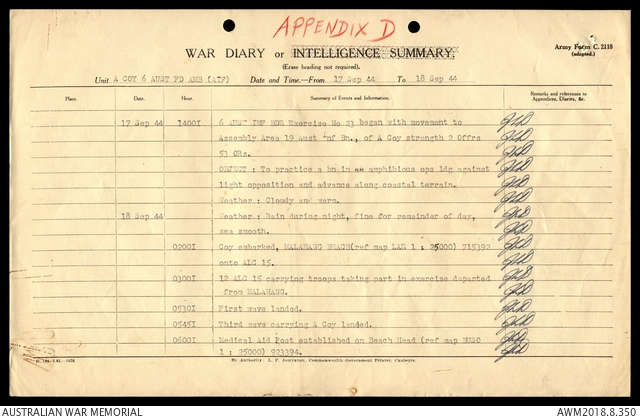 APPENDIX D
WAR DIARY or INTELLIGENCE SUMMARY.
Army Form C. 2118
(adapted.)
(Erase heading not required).
Unit A COY 6 AUST FD AMB (AIF) Date and Time.—From 17 Sep 44 To 18 Sep 44
Place. Date. Hour. Summary of Events and Information. Remarks and references to
Appendices, Diaries, &c.
17 Sep 44 1400I 6 AUST INF BDE Exercise No 23 began with movement to
Assembly Area 19 Aust Inf Bn., of A Coy strength 2 Offrs
53 ORs.
OBJECT : To practice a bn in amphibious ops ldg against
light opposition and advance along coastal terrain.
Weather : Cloudy and warm.
18 Sep 44 Weather : Rain during night, fine for remainder of day,
sea smooth.
0200I Coy embarked, MALAHANG BEACH(ref map LAE 1 : 25000) 715392
onto ALC 15.
0300I 12 ALC 15 carrying troops taking part in exercise departed
from MALAHANG.
0530I First wave landed.
0545I Third wave carrying A Coy landed.
0600I Medical Aid Post established on Beach Head (ref map BUSO
1 : 25000) 923394.
By Authority: L. F. Johnston, Commonwealth Government Printer, Canberra.
AUSTRALIAN WAR MEMORIAL
AWM2018.8.350